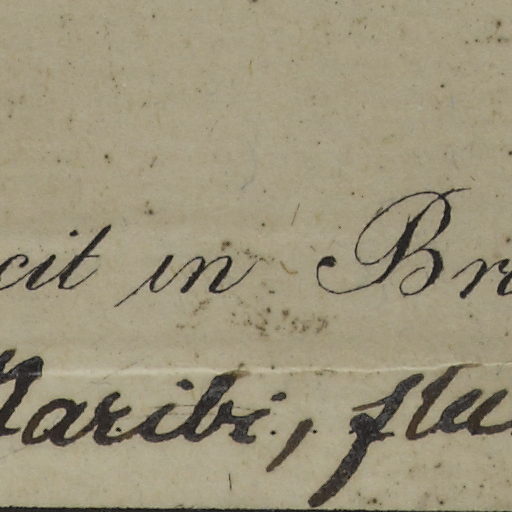 cit in Br
Maribi, flu